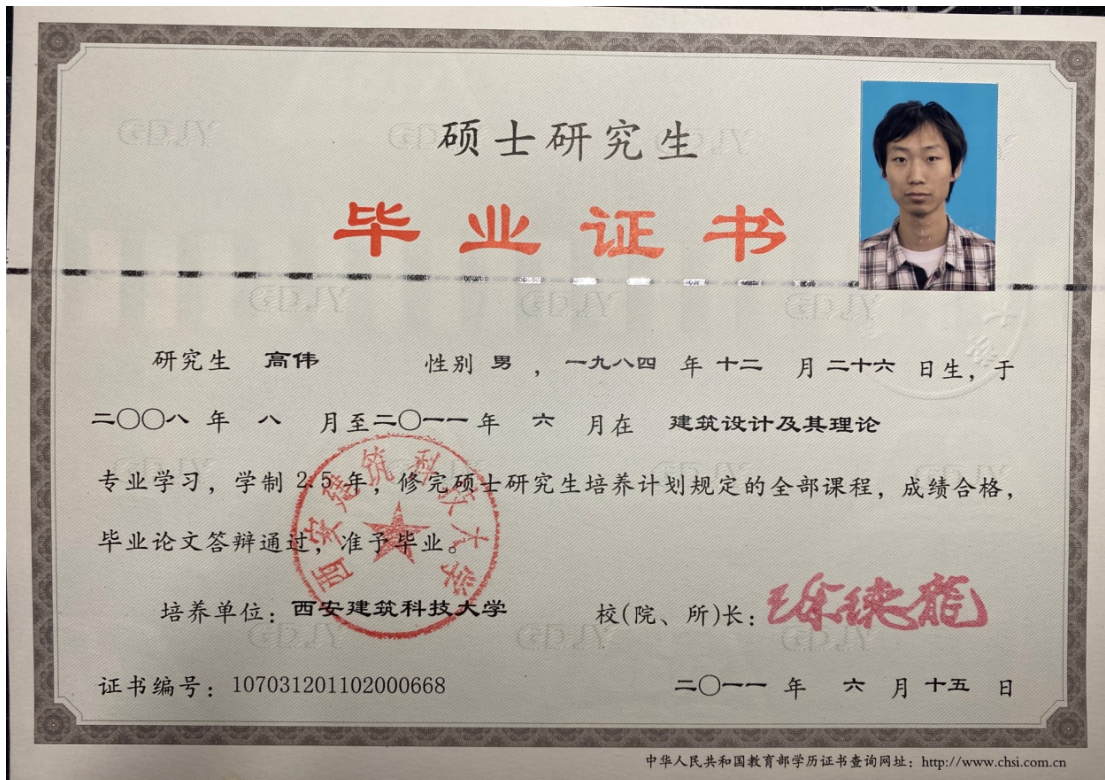 硕士研究生
毕业证书
研究生 高伟 性别 男 ，一九八四 年 十二 月 二十六 日生，于
二〇〇八 年 八 月至二〇一一 年 六 月在 建筑设计及其理论
专业学习，学制 2.5 年，修完硕士研究生培养计划规定的全部课程，成绩合格，
毕业论文答辩通过，准予毕业。
西安建筑科技大学
培养单位：西安建筑科技大学 校(院、所)长：徐德龙
证书编号：107031201102000668 二〇一一 年 六 月 十五 日
中华人民共和国教育部学历证书查询网址：http://www.chsi.com.cn